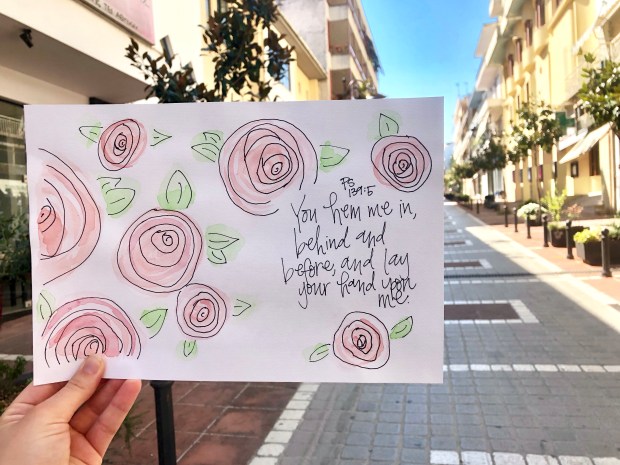 PS
139:5
You hem me in,
behind and
before, and lay
your hand upon
me.